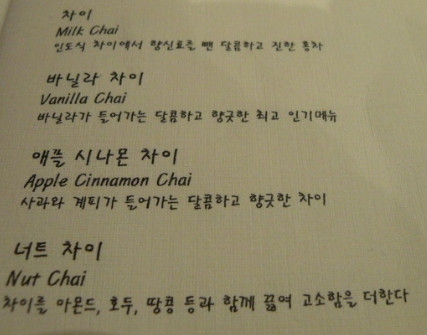 차이
Milk Chai
인도식 차이에서 향신료를 뺀 달콤하고 진한 홍차
바닐라 차이
Vanilla Chai
바닐라가 들어가는 달콤하고 향긋한 최고 인기메뉴
애플 시나몬 차이
Apple Cinnamon Chai
사과와 계피가 들어가는 달콤하고 향긋한 차이
너트 차이
Nut Chai
차이를 아몬드, 호두, 땅콩 등과 함께 끓여 고소함을 더한다